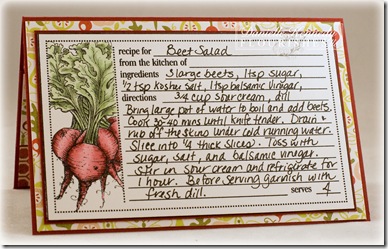 recipe for Beet Salad
from the kitchen of
ingredients 3 large beets, 1tsp sugar,
1/2 tsp kosher salt, 1tsp balsamic vinegar,
directions 3/4 cup sour cream, dill
Bring large pot of water to boil and add beets.
Cook 30-40 mins until knife tender. Drain &
rub off the skins under cold running water.
Slice into 1/4 thick slices). Toss with
sugar, salt, and balsamic vinegar.
Stir in sour cream and refrigerate for
1 hour. Before serving garnish with
fresh dill. serves 4